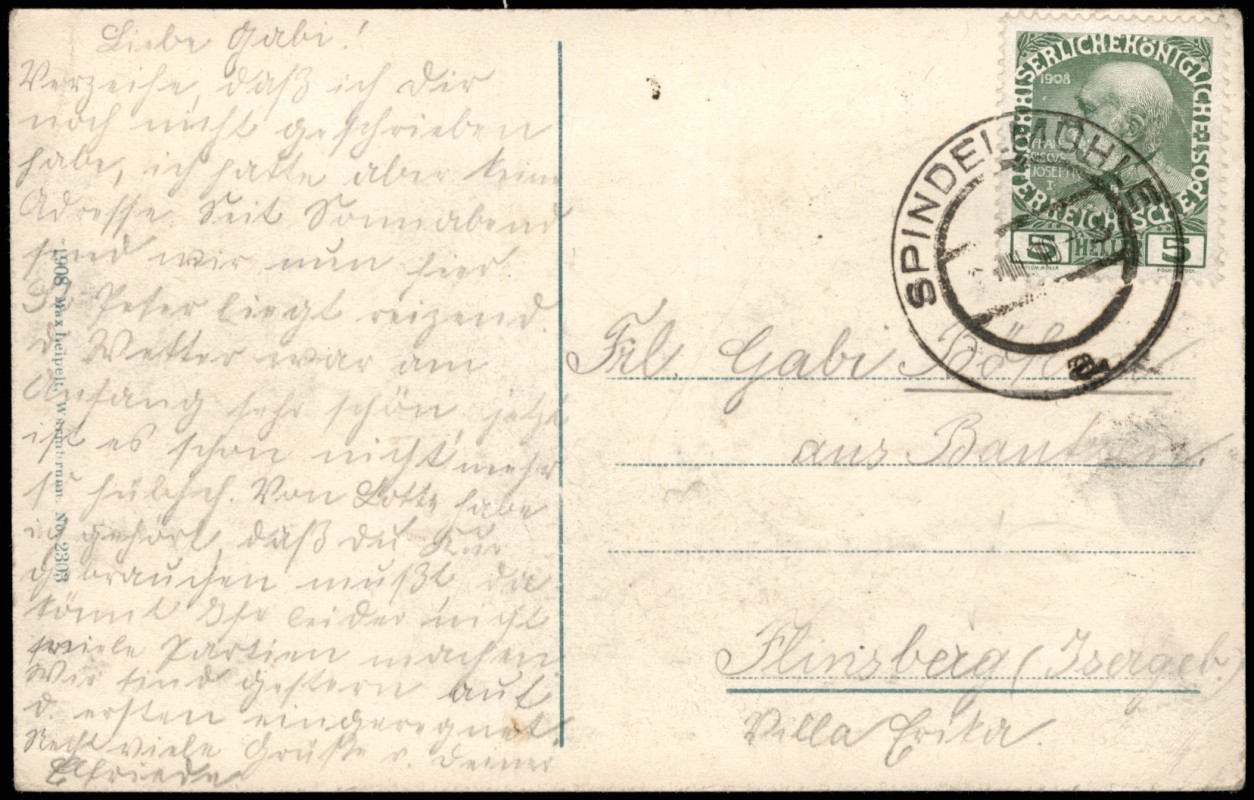 Liebe Gabi!
Verzeihe, daß ich Dir
noch nicht geschrieben
habe, ich hatte aber keine
Adresse. Seit Sonnabend
sind wir nun hier.
St. Peter liegt reizend.
D. Wetter war am
Anfang sehr schön, jetzt
ist es schon nicht mehr
so hübsch. Von Lotte habe
ich gehört, daß du Kur
gebrauchen mußt, da
könnt Ihr leider nicht
viele Partien machen
Wir sind gestern auf
d. ersten eingeregnet.
Recht viele Grüße v. Deiner
Elfriede.
1908 Max Leipelt, Warmbrunn. No. 2303
KAISERLICHE KÖNIGLICHE
ÖSTERREICHISCHE POST
1908
FRAN
CISCVS
JOSEPH
I
5 HELLER 5
SPINDELMÜHLE
Frl. Gabi
aus Bautzen.
Flinsberg (Isergeb.)
Villa Erika.